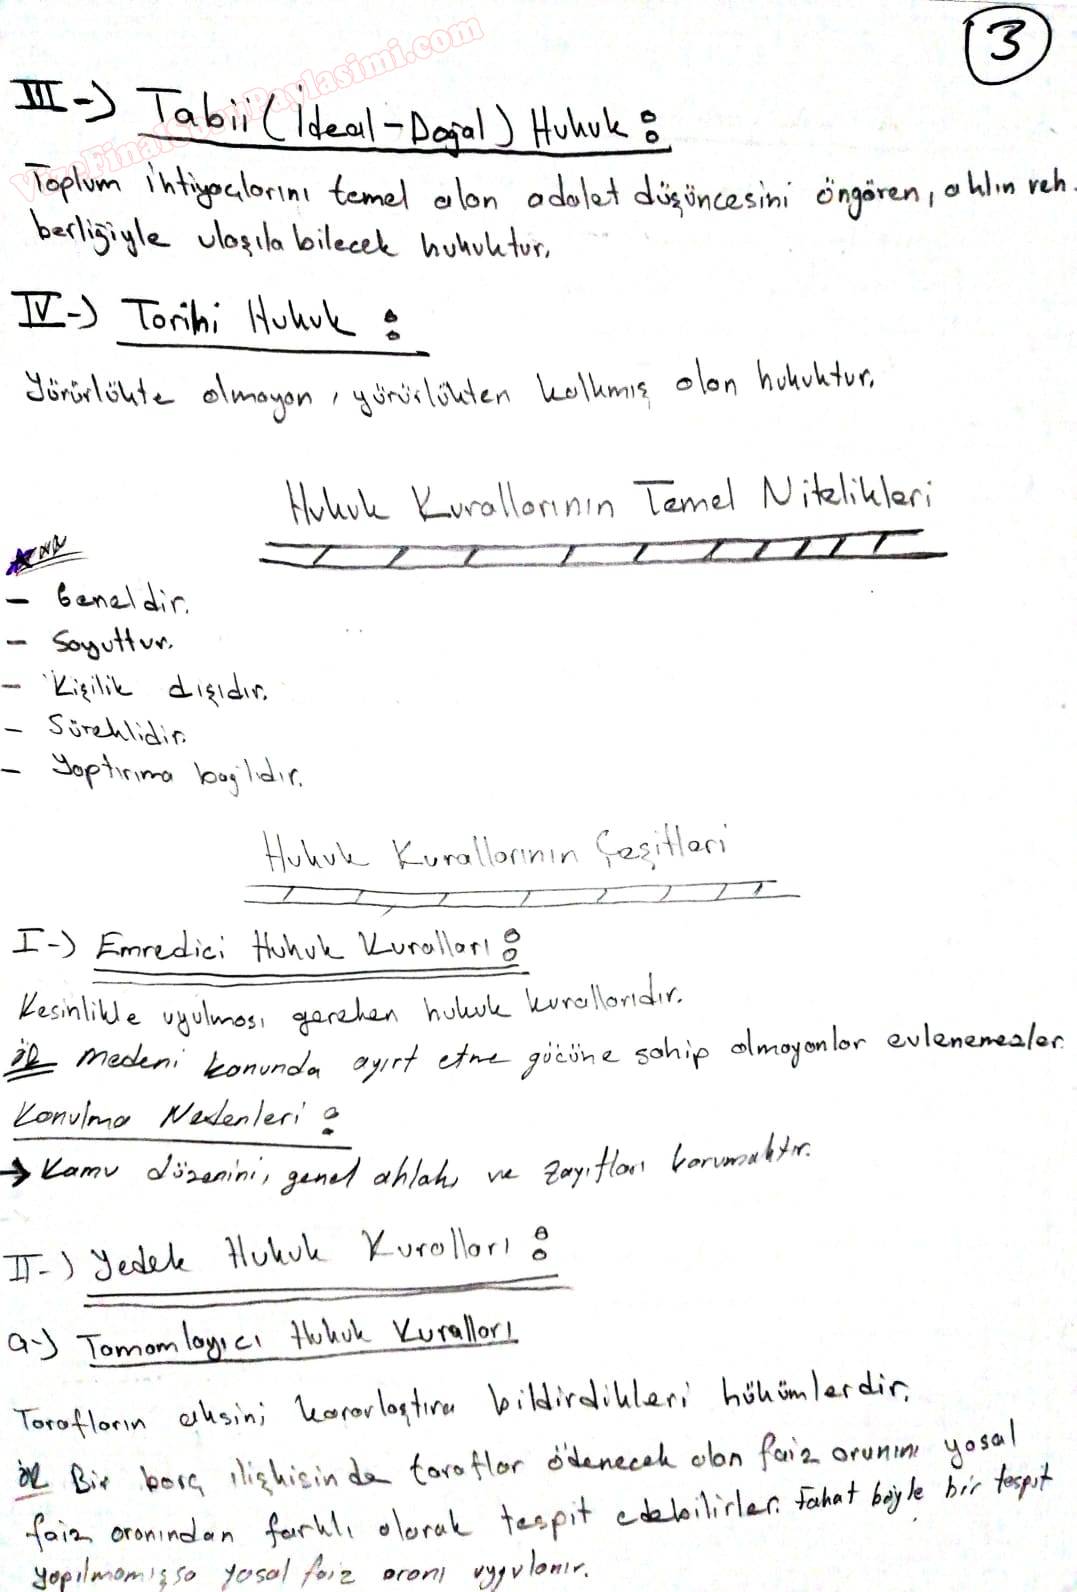 3
VizeFinalSoruPaylasimi.com
III-) Tabii (İdeal-Doğal) Hukuk:
Toplum ihtiyaçlarını temel alan adalet düşüncesini öngören, aklın reh.
berliğiyle ulaşıla bilecek hukuktur.
IV-) Tarihi Hukuk:
Yürürlükte olmayan, yürürlükten kalkmış olan hukuktur.
Hukuk Kurallarının Temel Nitelikleri
- Geneldir.
- Soyuttur.
- Kişilik dışıdır.
- Süreklidir.
- Yaptırıma bağlıdır.
Hukuk Kurallarının Çeşitleri
I-) Emredici Hukuk Kuralları:
Kesinlikle uyulması gereken hukuk kurallarıdır.
ör Medeni kanunda ayırt etme gücüne sahip olmayanlar evlenemezler.
Konulma Nedenleri:
→ Kamu düzenini, genel ahlakı ve zayıfları korumaktır.
II-) Yedek Hukuk Kuralları:
a-) Tamamlayıcı Hukuk Kuralları
Tarafların aksini kararlaştıra bildirdikleri hükümlerdir.
ör Bir borç ilişkisinde taraflar ödenecek olan faiz oranını yasal
faiz oranından farklı olarak tespit edebilirler. Fakat böyle bir tespit
yapılmamışsa yasal faiz oranı uygulanır.